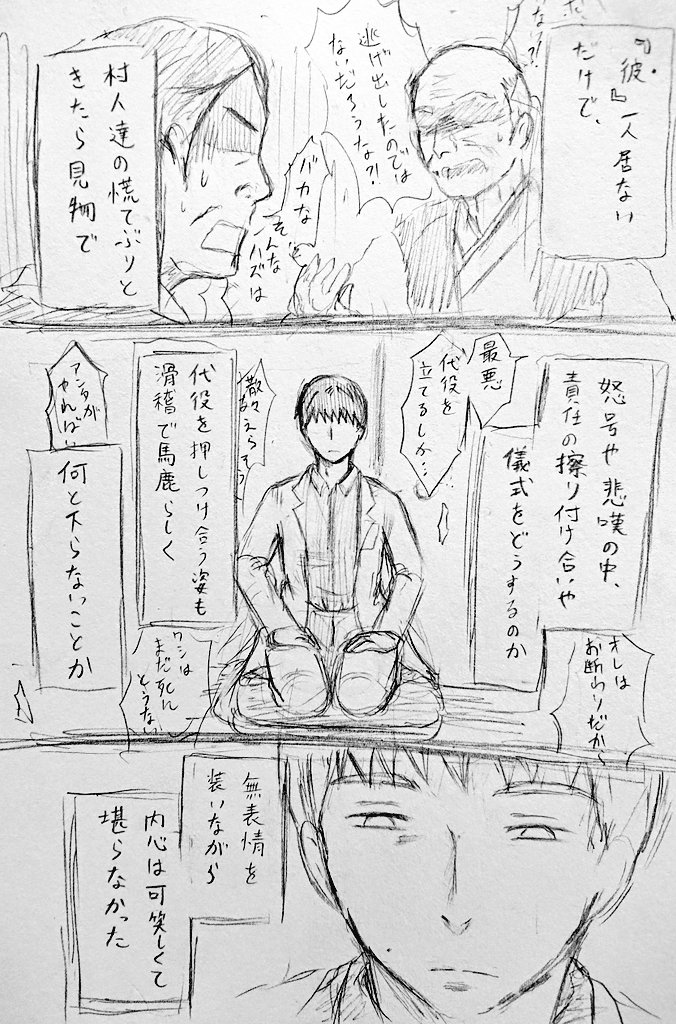 『彼』一人居ない
だけで、
逃げ出したのでは
ないだろうな?!
バカな
そんな
ハズは
村人達の慌てぶりと
きたら見物で
怒号や悲嘆の中、
責任の擦り付け合いや
儀式をどうするのか
最悪
代役を
立てるしか…
オレは
お断わりだから
代役を押しつけ合う姿も
滑稽で馬鹿らしく
アンタが
やればいい
ワシは
まだ死に
とうない
何と下らないことか
無表情を
装いながら
内心は可笑しくて
堪らなかった